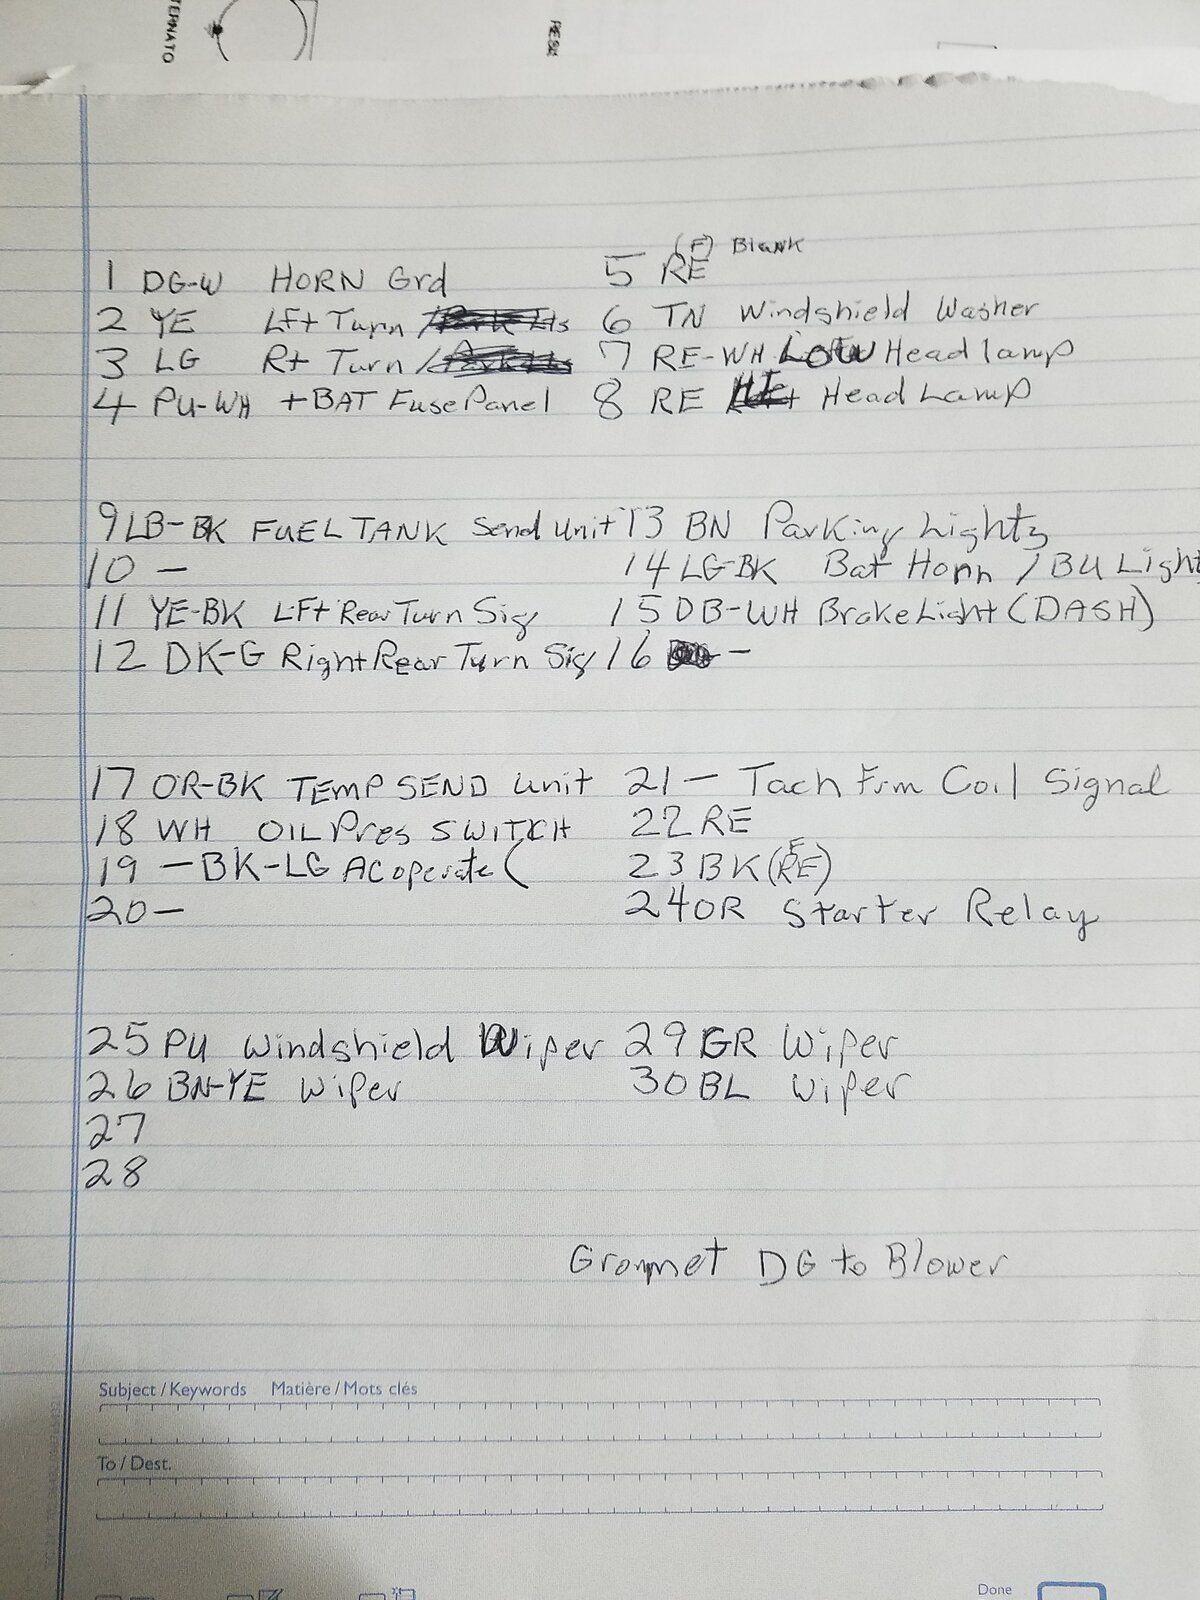 TERNATO
RESI
1 DG-W HORN Grd
2 YE Lft Turn
3 LG Rt Turn
4 PU-WH +BAT Fuse Panel
(F) Blank
5 RE
6 TN Windshield Washer
7 RE-WH LOW Headlamp
8 RE HI Head Lamp
9 LB-BK FUEL TANK Send Unit
10 -
11 YE-BK Lft Rear Turn Sig
12 DK-G Right Rear Turn Sig
13 BN Parking Lights
14 LG-BK Bat Horn / BU Light
15 DB-WH Brake Light (DASH)
16 -
17 OR-BK TEMP SEND Unit
18 WH OIL Pres SWITCH
19 - BK-LG AC operate (
20 -
21 - Tach Frm Coil Signal
22 RE
23 BK (RE)
F
24 OR Starter Relay
25 PU Windshield Wiper
26 BN-YE Wiper
27
28
29 GR Wiper
30 BL Wiper
Grommet DG to Blower
Subject / Keywords Matière / Mots clés
To / Dest.
Done